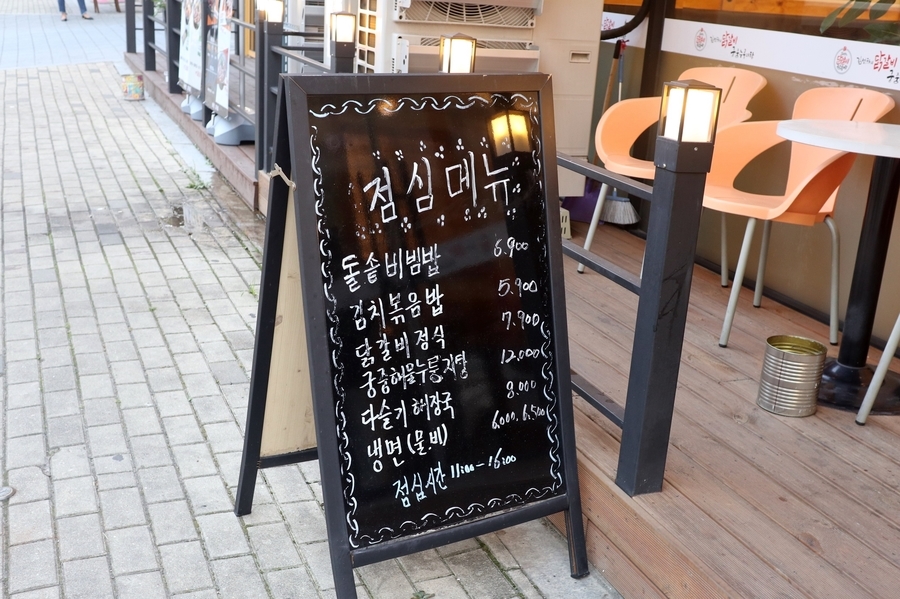 점심메뉴
돌솥비빔밥 6.900
김치볶음밥 5.900
닭갈비정식 7.900
궁중해물누룽지탕 12.000
다슬기해장국 8.000
냉면(물.비) 6,000. 6.500
점심시간 11:00-16:00
닭갈비